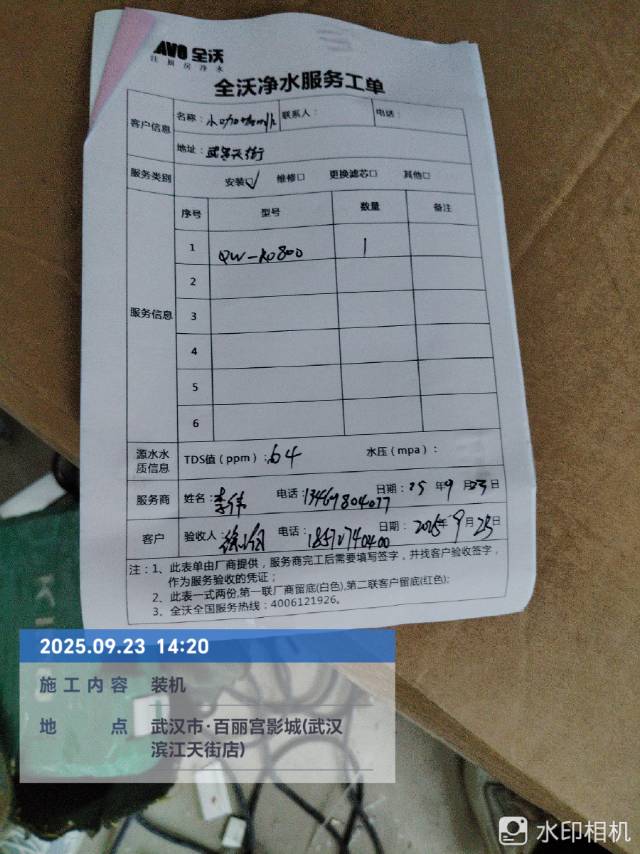 AVO 全沃
全沃净水服务工单
客户信息 名称： 联系人： 电话：
地址： 天街
服务类别 安装☑ 维修□ 更换滤芯□ 其他□
服务信息 序号 型号 数量 备注
1 QW-R0800 1
2
3
4
5
6
源水水质信息 TDS值（ppm）：64 水压（mpa）：
服务商 姓名：李伟 电话：13469804077 日期：25 年 9 月 23 日
客户 验收人： 电话： 日期：2025年 9 月 23 日
注：1、此表单由厂商提供，服务商完工后需要填写签字，并找客户验收签字，
作为服务验收的凭证；
2、此表一式两份,第一联厂商留底(白色),第二联客户留底(红色)；
3、全沃全国服务热线：4006121926。
2025.09.23 14:20
施工内容 装机
地 点 武汉市·百丽宫影城(武汉
滨江天街店)
水印相机